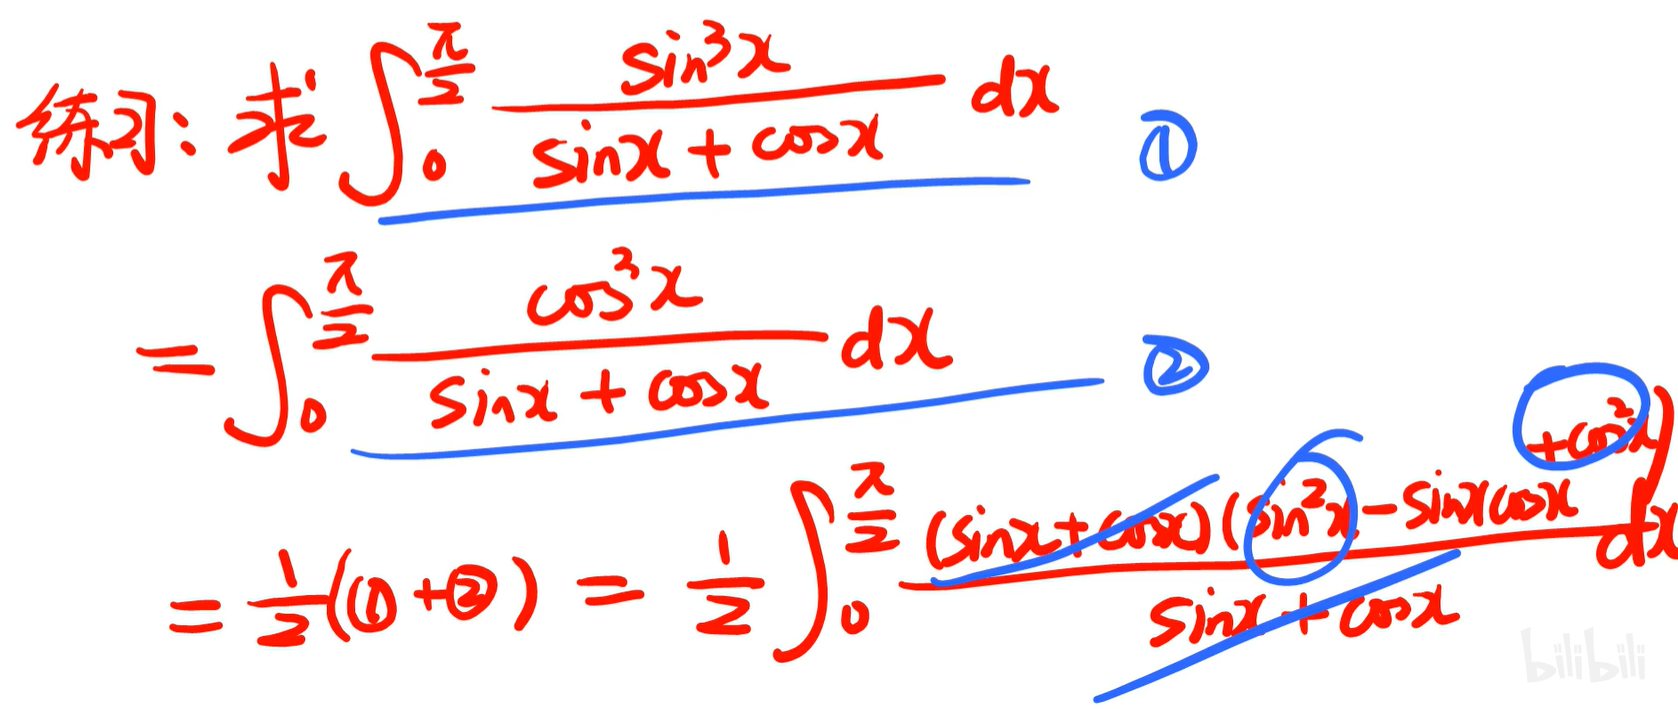 练习: 求 ∫₀^(π/2) sin³x / (sinx + cosx) dx ①
= ∫₀^(π/2) cos³x / (sinx + cosx) dx ②
= 1/2 (① + ②) = 1/2 ∫₀^(π/2) (sinx + cosx)(sin²x - sinxcosx + cos²x) / (sinx + cosx) dx
bilibili